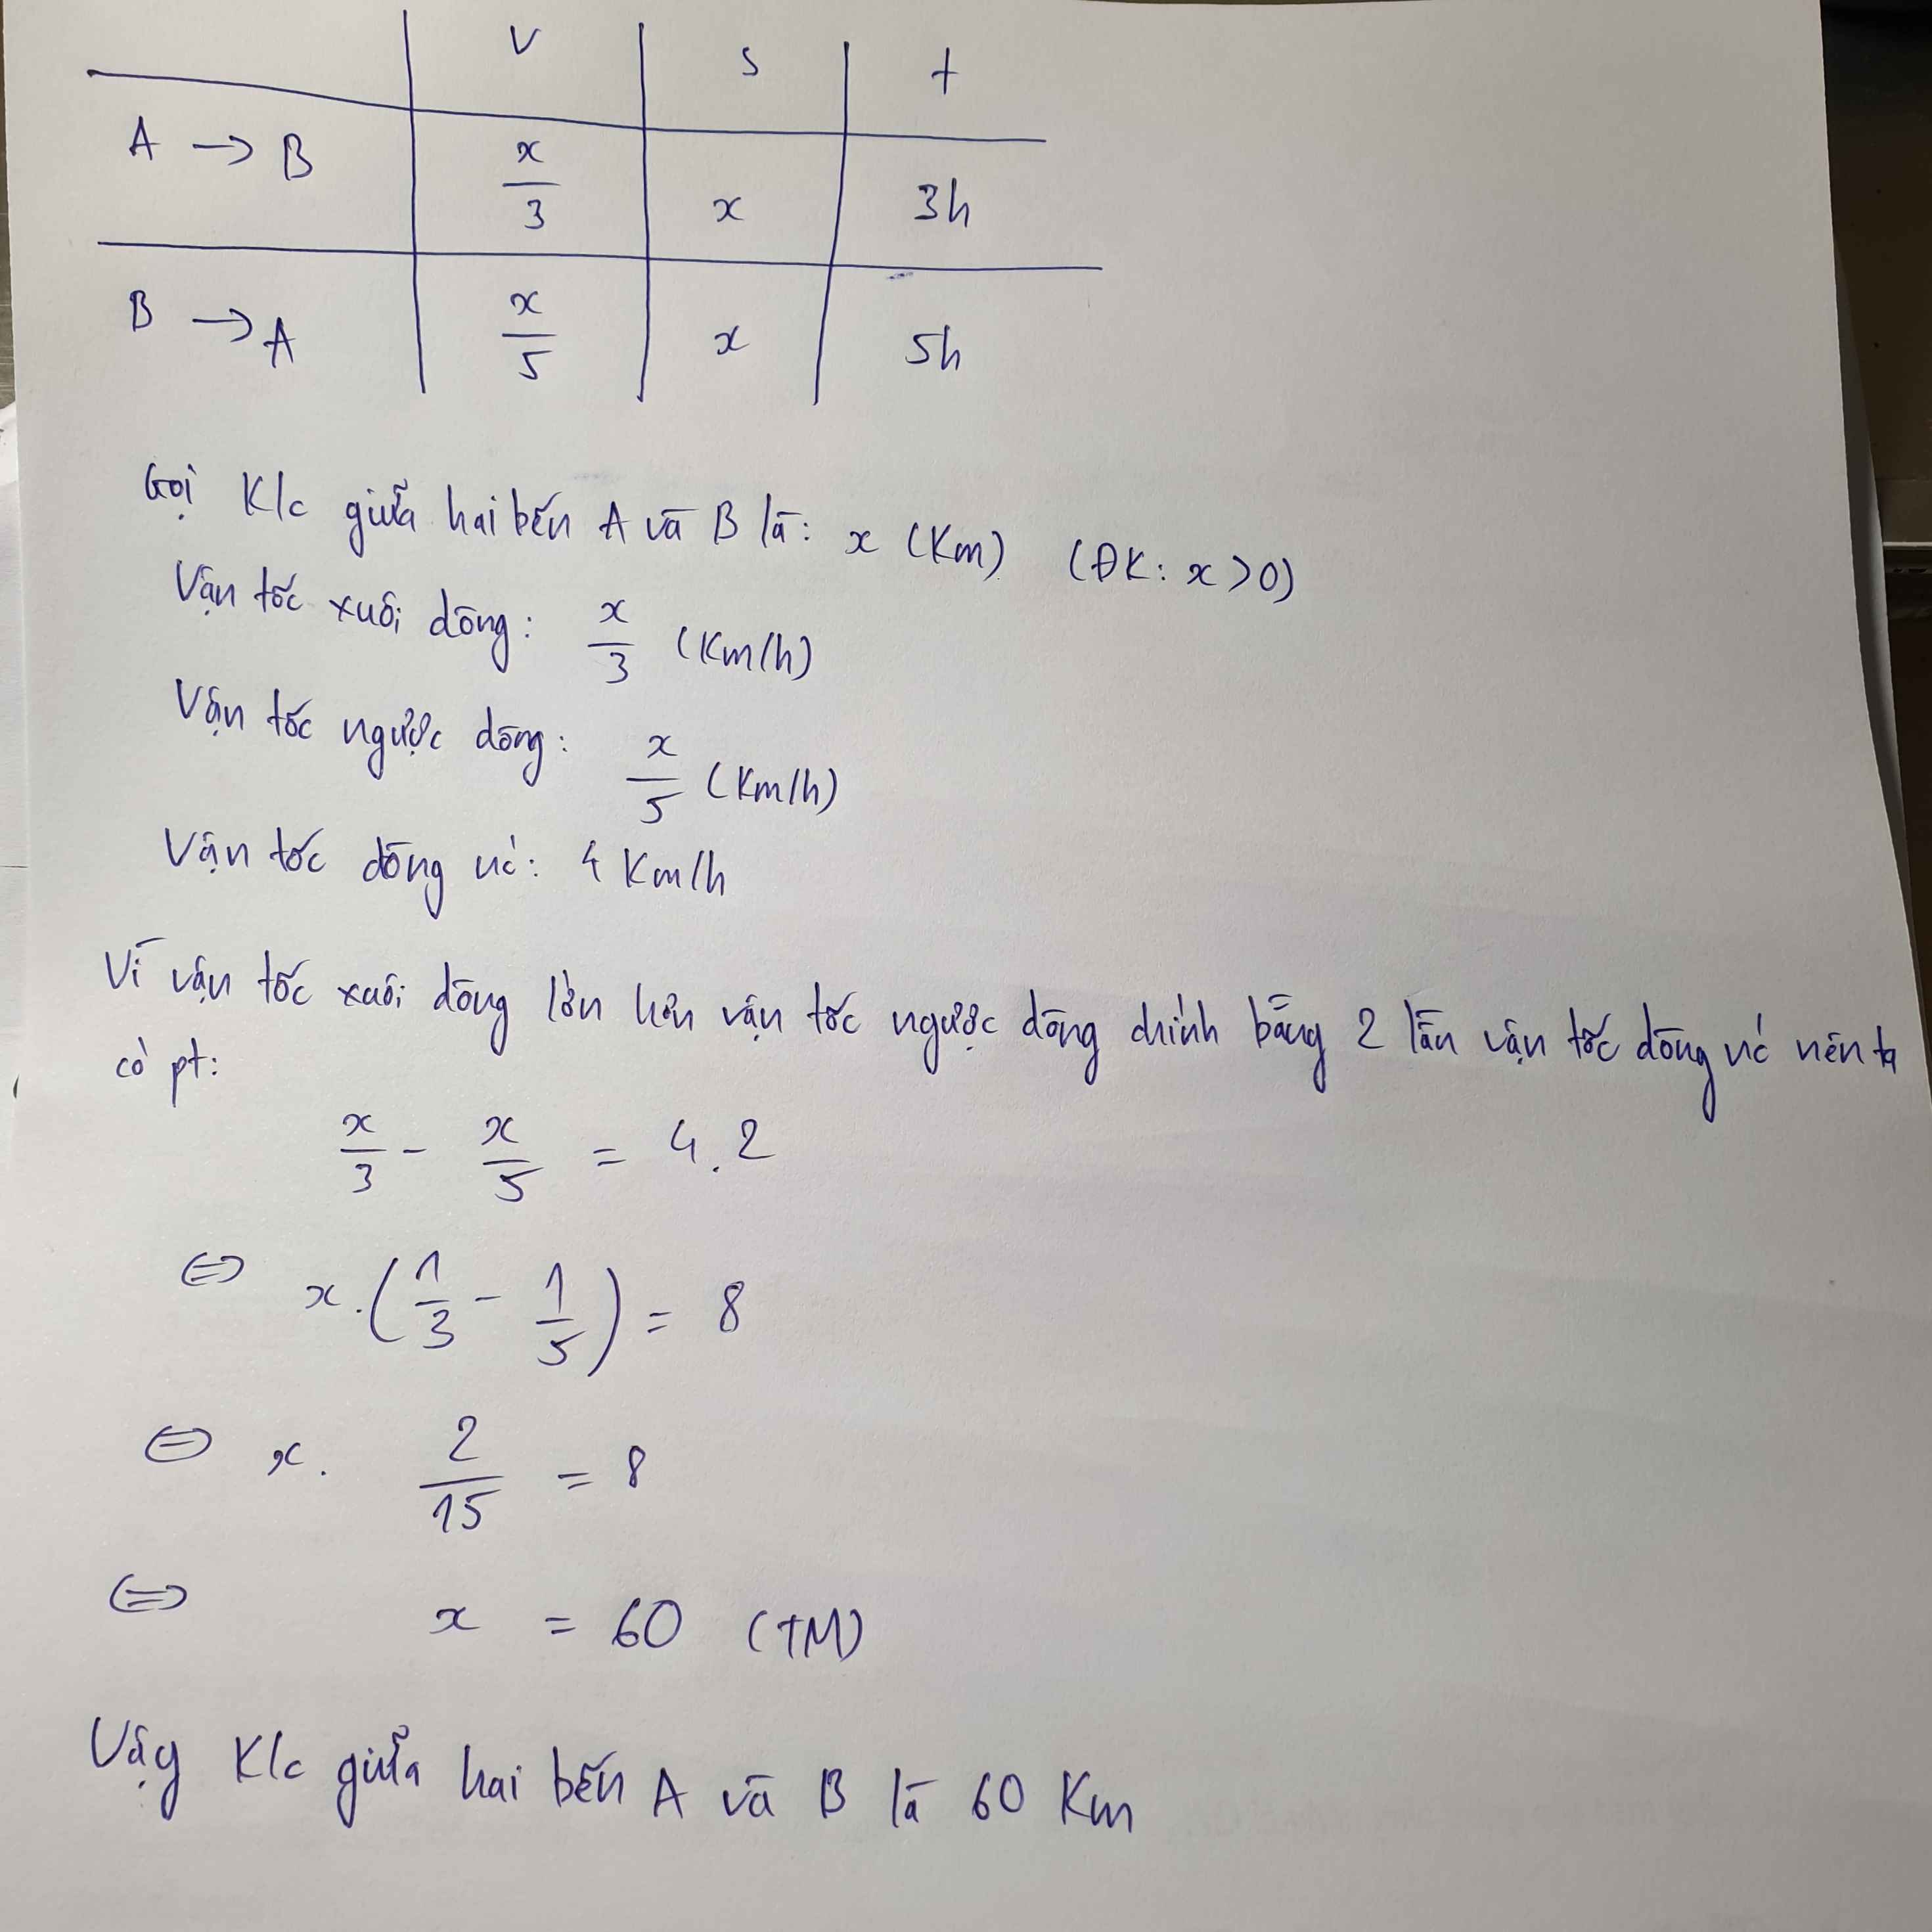 V S t
A → B x/3 x 3h
B → A x/5 x 5h
Gọi K/c giữa hai bến A và B là: x (Km) (ĐK: x > 0)
Vận tốc xuôi dòng: x/3 (Km/h)
Vận tốc ngược dòng: x/5 (Km/h)
Vận tốc dòng nc: 4 Km/h
Vì vận tốc xuôi dòng lớn hơn vận tốc ngược dòng chính bằng 2 lần vận tốc dòng nc nên ta
có pt:
x/3 - x/5 = 4.2
⇔ x.(1/3 - 1/5) = 8
⇔ x. 2/15 = 8
⇔ x = 60 (TM)
Vậy K/c giữa hai bến A và B là 60 Km